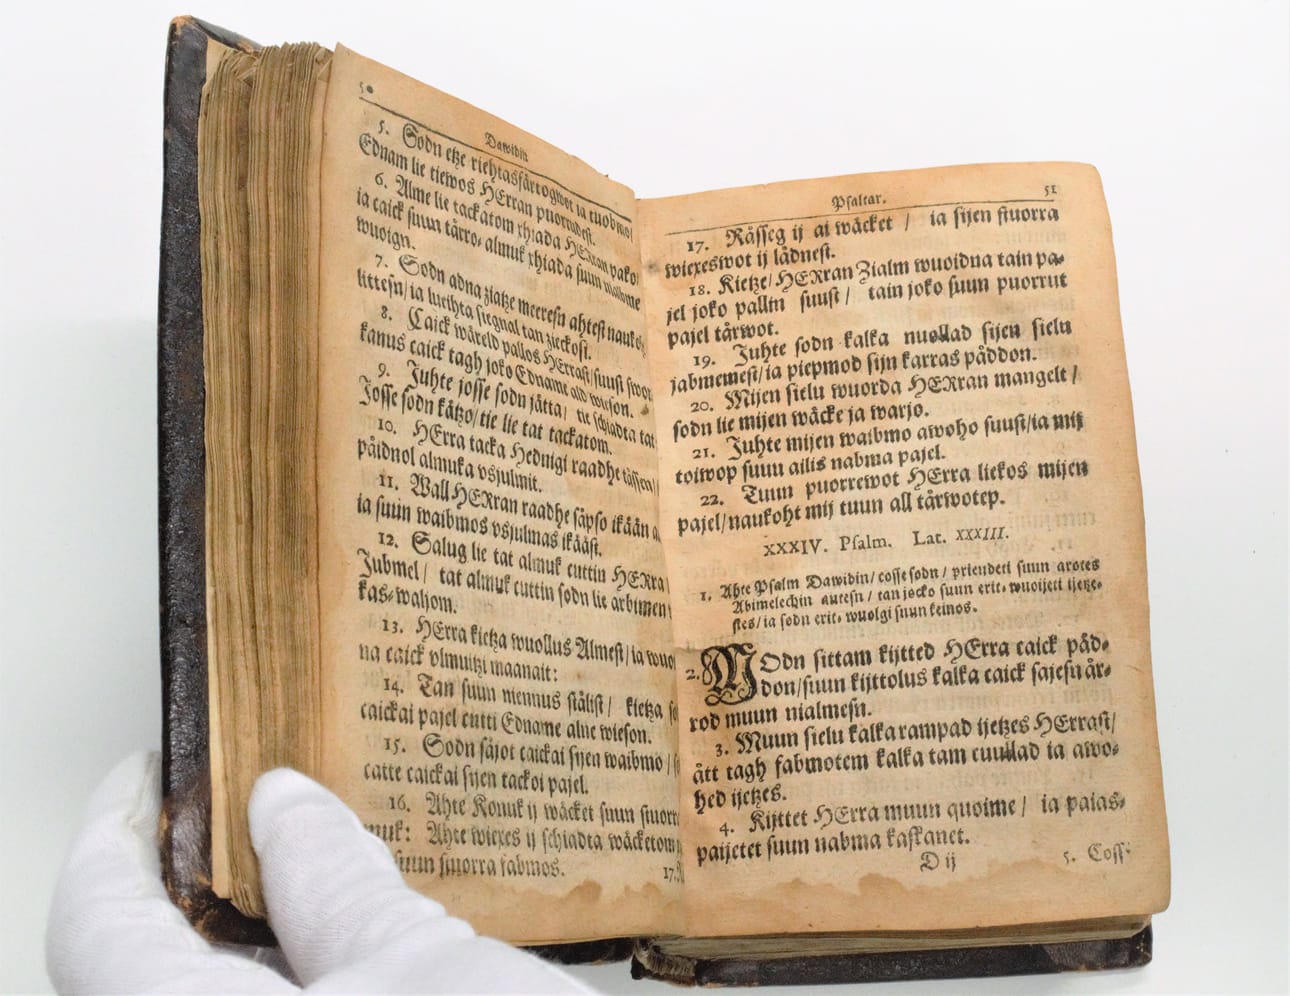 50
Dawidin
5. Sodn etze riehtasfårtogwot ja tuobmo/
Ednam lie tiewos HErran puorrudest.
6. Alme lie tackatom rhiada HERran pako/
ia caick suun tårro- almuk rhiada suun nialme
wuoign.
7. Sodn adna ziatze meeresn ahtest naukoh
littesn/ ia lweihta siegnal tan zieckost.
8. Caick wåreld pallos HErrast/ suust swor
kanus caick tagh joko Edname ald wieson.
9. Juhte josse sodn jåtta/ tie schiadta tat
Josse sodn kåtzo/ tie lie tat tackatom.
10. HErra tacka Hednigi raadhe tåssen/
påidnol almuka vsjulmit.
11. Wall HERran raadhe såpso ikåån
ia suun waibmos vsjulmas ikååst.
12. Salug lie tat almuk cuttin HERra
Jubmel/ tat almuk cuttin sodn lie arbimen
kas-waljom.
13. HErra kietza wuollus Almest/ ia wuo
na caick olmuitzi maanait:
14. Tan suun niennus stålist/ kietza
caickai pajel cutti Edname alne wieson.
15. Sodn såjot caickai sijen waibmo/
catte caickai sijen tackoi pajel.
16. Ahte Konuk ij wåcket suun stuorr
muk: Ahte wiexes ij schiadta wåcketom
suun stuorra fabmos.
17.
Psaltar. 51
17. Råsseg ij ai wåcket / ia sijen stuorra
wiexeswot ij lådnest.
18. Kietze/ HERran Zialm wuoidna tain pa-
jel joko pallin suust / tain joko suun puorrut
pajel tårwot.
19. Juhte sodn kalka nuollad sijen sielu
jabmemest/ ia piepmod sijn karras påddon.
20. Mijen sielu wuorda HERran mangelt /
sodn lie mijen wåcke ja warjo.
21. Juhte mijen waibmo awoho suust/ ia mij
toiwop suun ailis nabma pajel.
22. Tuun puorrewot HErra liekos mijen
pajel/ naukoht mij tuun all tårwotep.
XXXIV. Psalm. Lat. XXXIII.
1. Ahte Psalm Dawidin/ cosse sodn/ prieudeti suun arotes
Abimelechin autesn/ tan jocko suun erit- wuoijeti ijetze-
stes/ ia sodn erit- wuolgi suun keinos.
2. MOdn sittam kijtted HErra caick påd-
don/ suun kijttolus kalka caick sajesn år-
rod muun nialmesn.
3. Muun sielu kalka rampad ijetzes HErrast/
ått tagh fabmotem kalka tam cuullad ia awo-
hed ijetzes.
4. Kijttet HErra muun quoime / ia paias-
paijetet suun nabma kaskanet.
D ij 5. Coss-